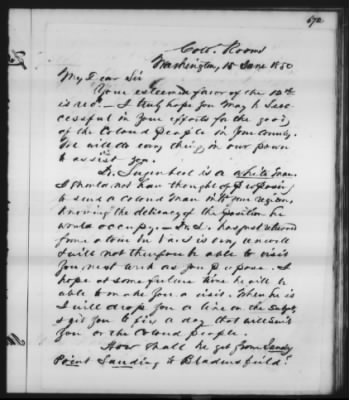 672
Col. Rooms
Washington, 15 June 1850
My Dear Sir
Your esteemed favor of the 12th
is recd. — I truly hope you may be suc-
cessful in your efforts for the good
of the Colored People in your county.
We will do every thing in our power
to assist you.
Dr. is a white man.
I should not have thought of proposing
to send a colored man into your region,
knowing the delicacy of the position he
would occupy. — Dr. L. has just returned
from a tour in Va & is very unwell
& will not therefore be able to visit
you next week as you propose. I
hope at some future time he will be
able to make you a visit. When he is
I will drop you a line on the subject,
& get you to fix a day that will suit
you or the Colored people.
How shall he get from Sandy
Point Landing to Bladensfield?